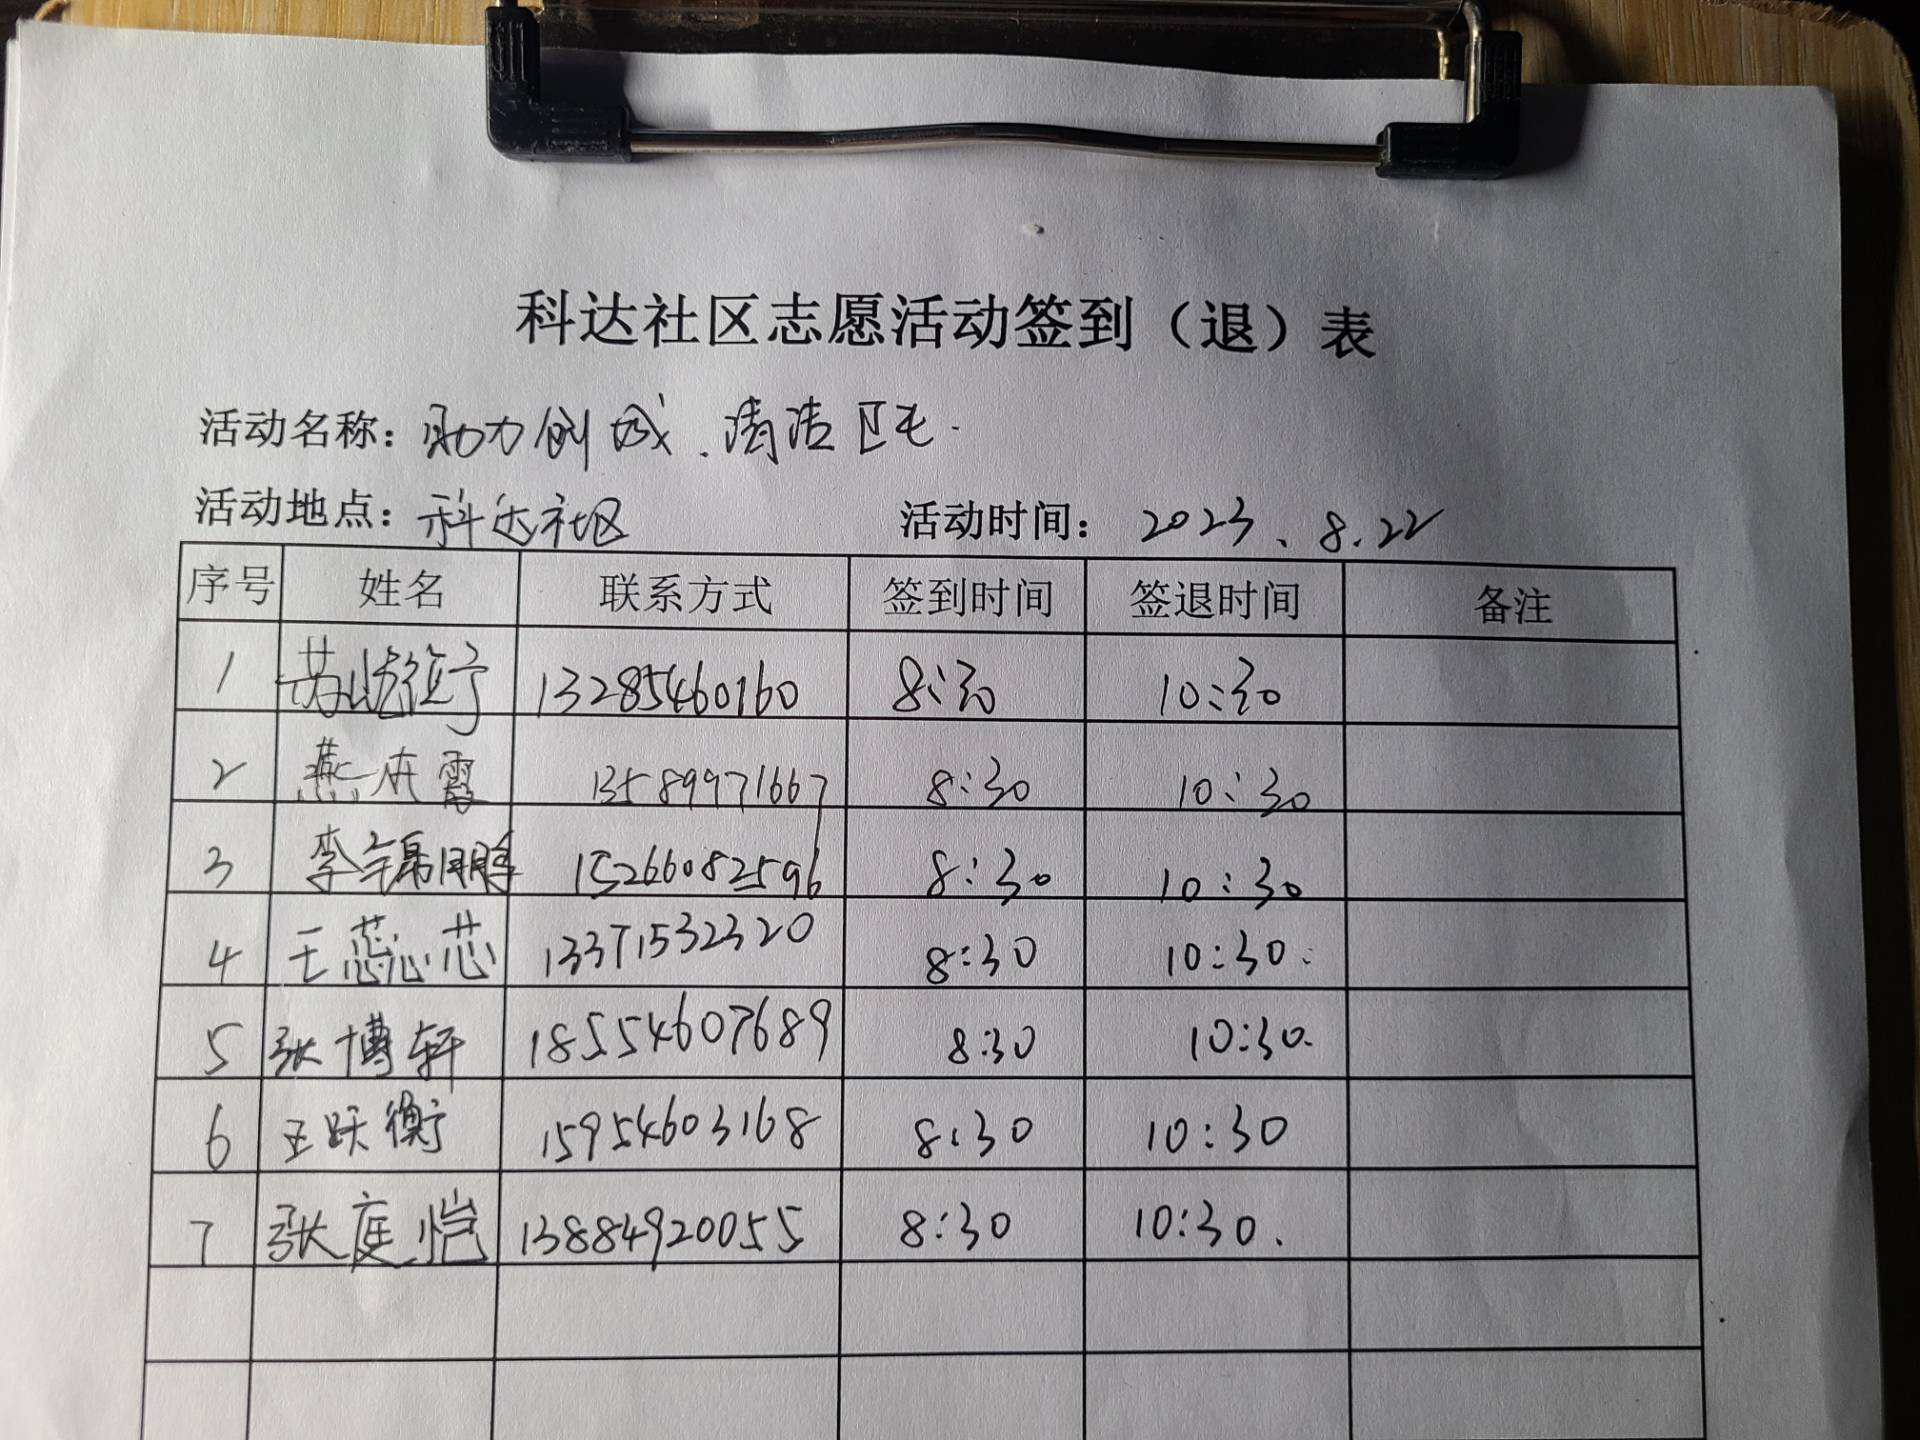 科达社区志愿活动签到（退）表
活动名称：助力创城.清洁区毛.
活动地点：科达社区 活动时间：2023、8.22
序号 姓名 联系方式 签到时间 签退时间 备注
1 13285460160 8:30 10:30
2 燕庆霞 13589971667 8:30 10:30
3 李锦鹏 15266082596 8:30 10:30
4 王蕊芯 13371532320 8:30 10:30.
5 张博轩 18554607689 8:30 10:30.
6 王跃衡 15954603168 8:30 10:30
7 张庭恺 13884920055 8:30 10:30.